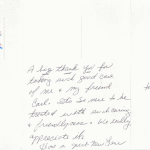 A big thank you for
taking such good care
of me & my friend
Carl. It's so nice to be
treated with such caring
& friendliness - We really
appreciate it.
Have a great New Year
to